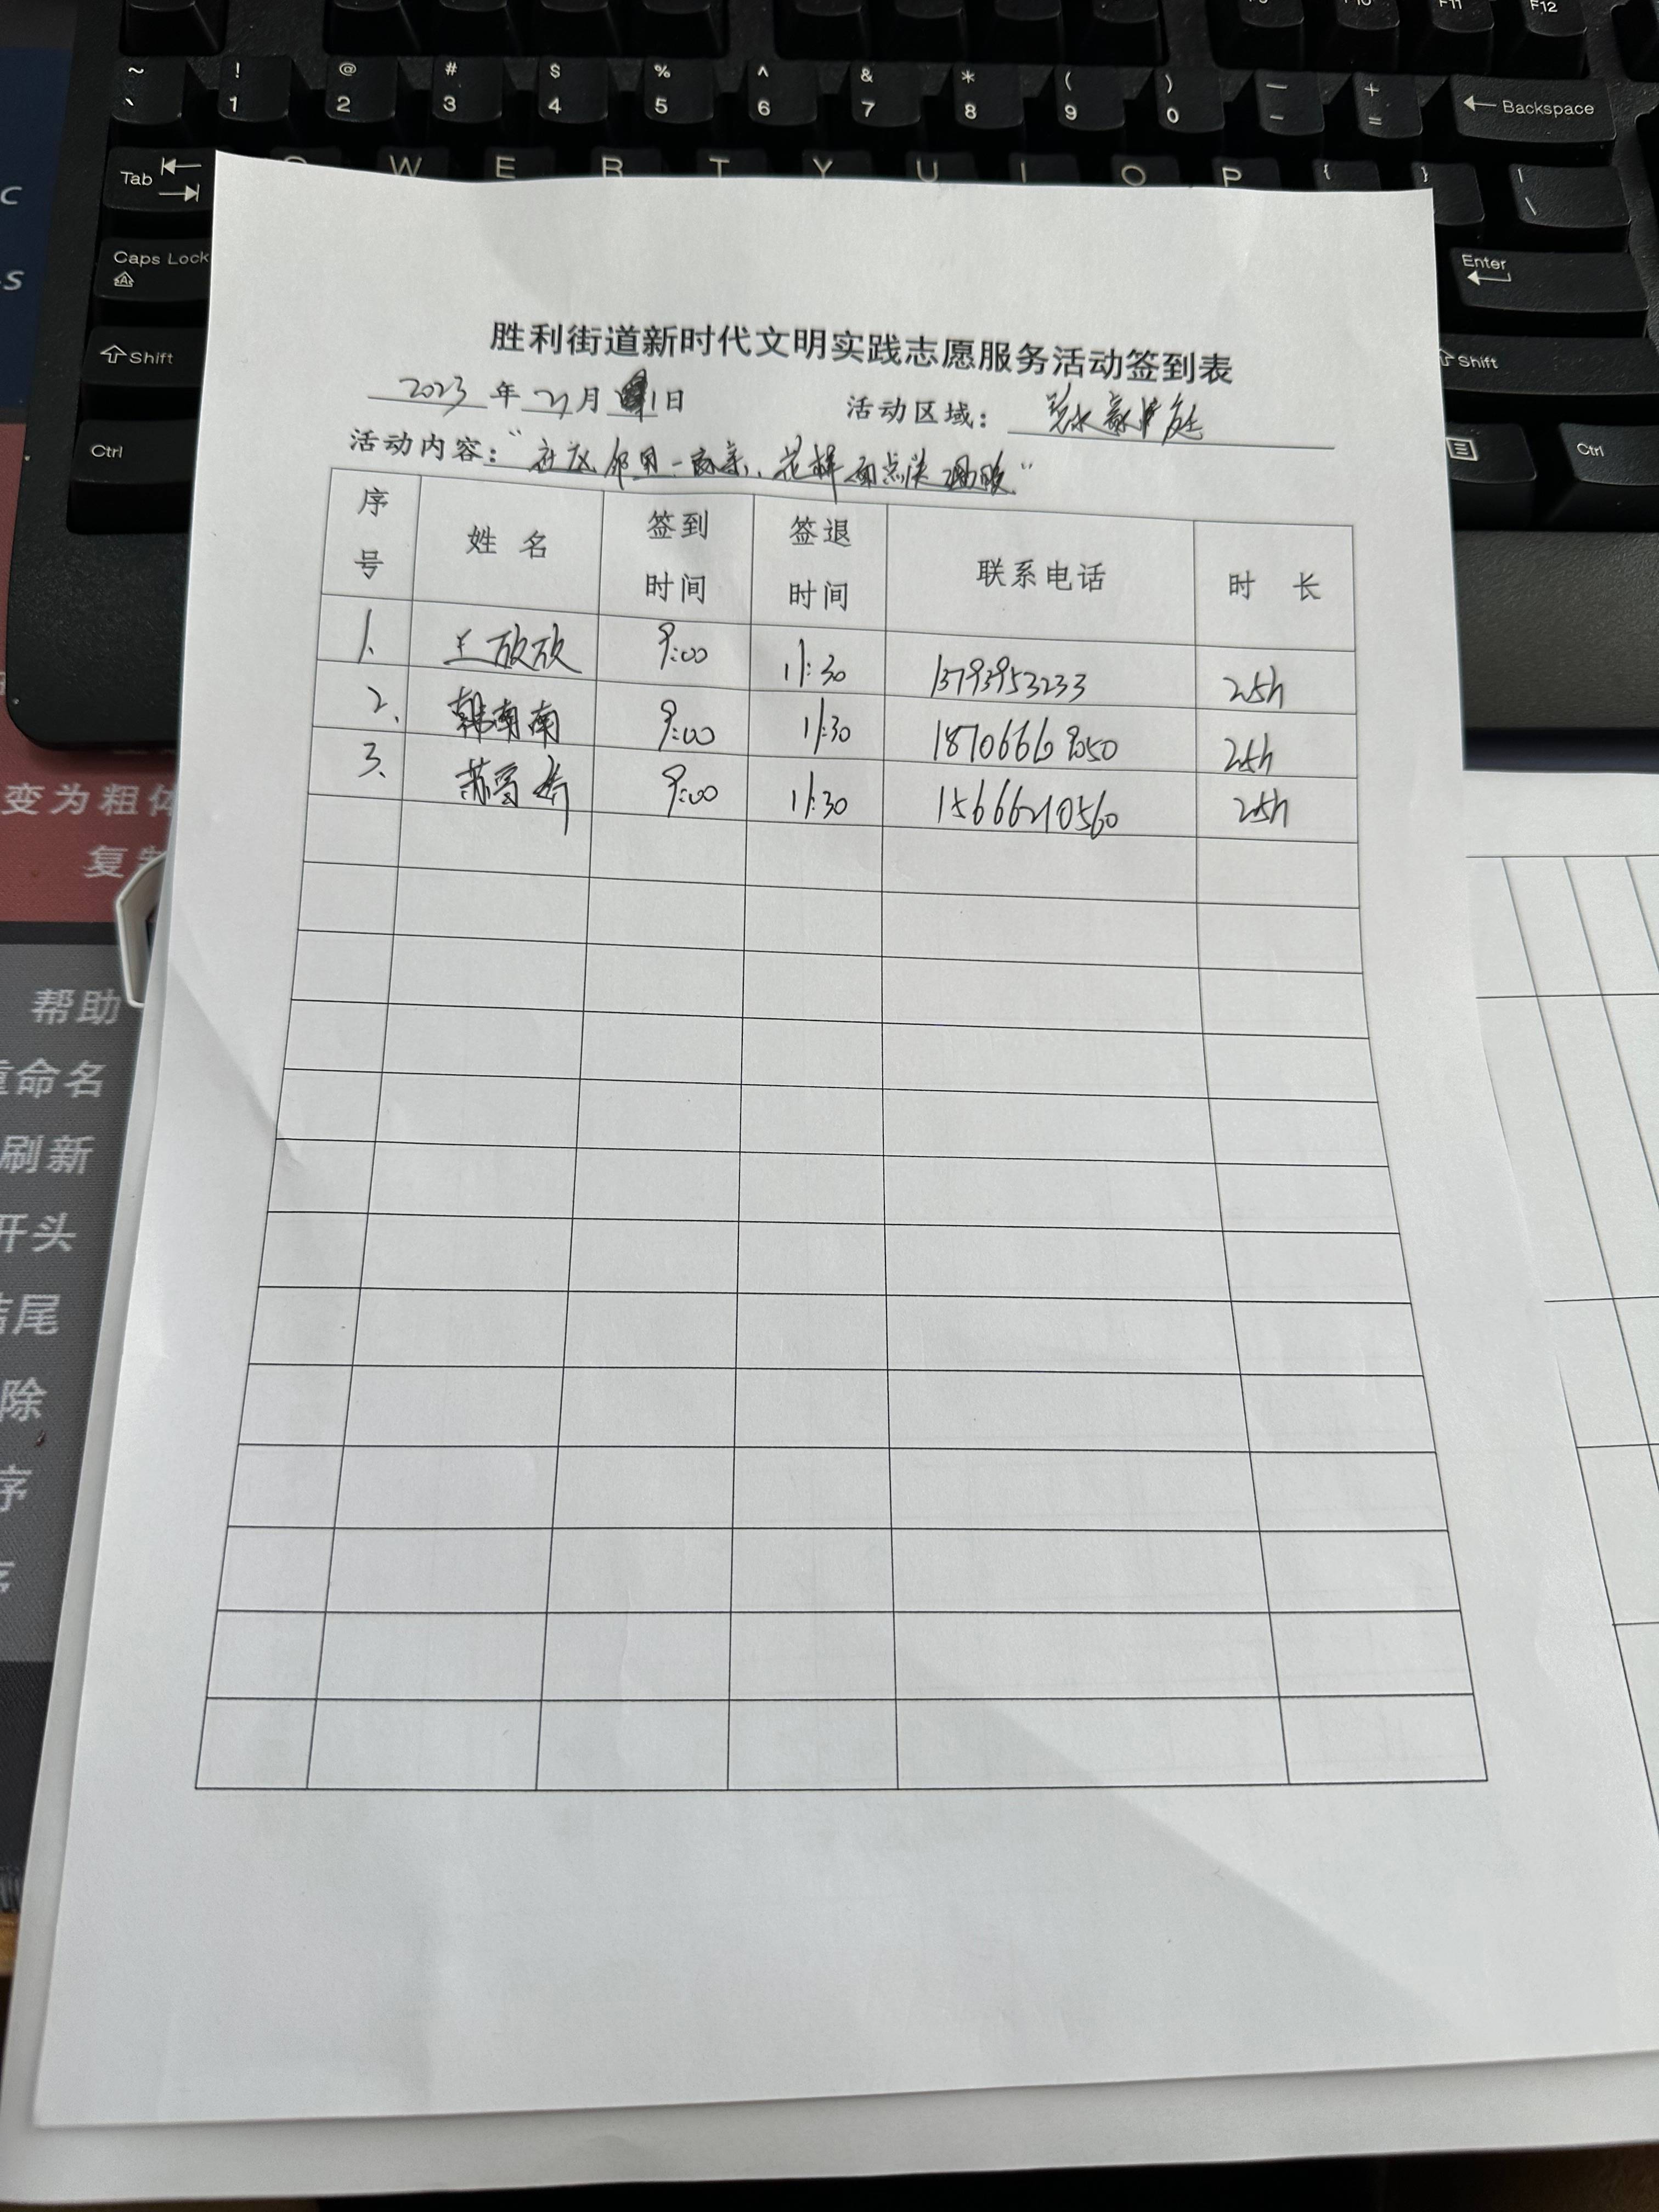 F11 F12
~ ! @ # $ % ^ & * ( ) — +
` 1 2 3 4 5 6 7 8 9 0 - = Backspace
Tab W E R T Y U I O P { } | \
Caps Lock Enter
Shift Shift
Ctrl Ctrl
胜利街道新时代文明实践志愿服务活动签到表
2023 年 月 1日 活动区域:
活动内容:“社区邻里一家亲、花样面点 ”
序号 姓名 签到时间 签退时间 联系电话 时长
1. 王欣欣 9:00 11:30 13793953233 2.5h
2. 韩南南 9:00 11:30 18706668050 2.5h
3. 苏雪 9:00 11:30 15666210560 2.5h
变为粗体
复制
帮助
重命名
刷新
开头
结尾
除
序